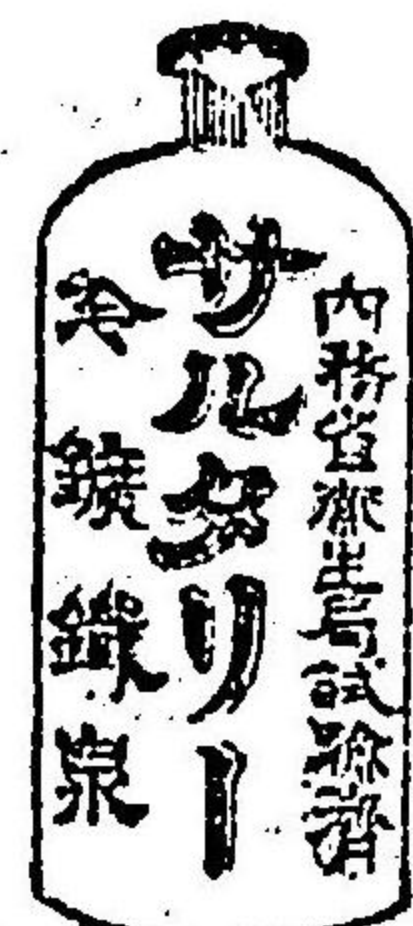 内務省衛生局試驗濟
サルタリー
冷鑛鐵泉